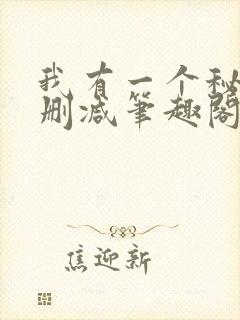 我有一个秘
删减笔趣阁
焦迎新